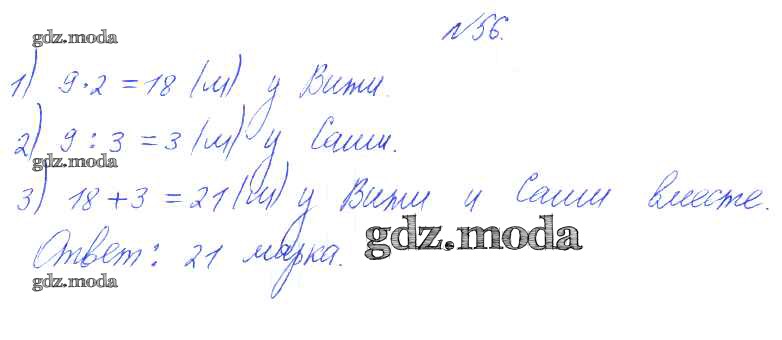 №56.
gdz.moda
1) 9·2=18 (м) у Вити.
2) 9:3=3 (м) у Саши.
gdz.moda
3) 18+3=21 (м) у Вити и Саши вместе.
Ответ: 21 марка.
gdz.moda
gdz.moda